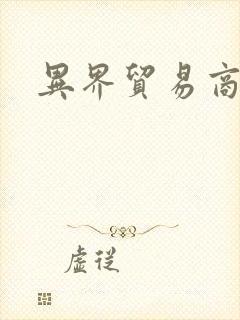 異界貿易商
虛從